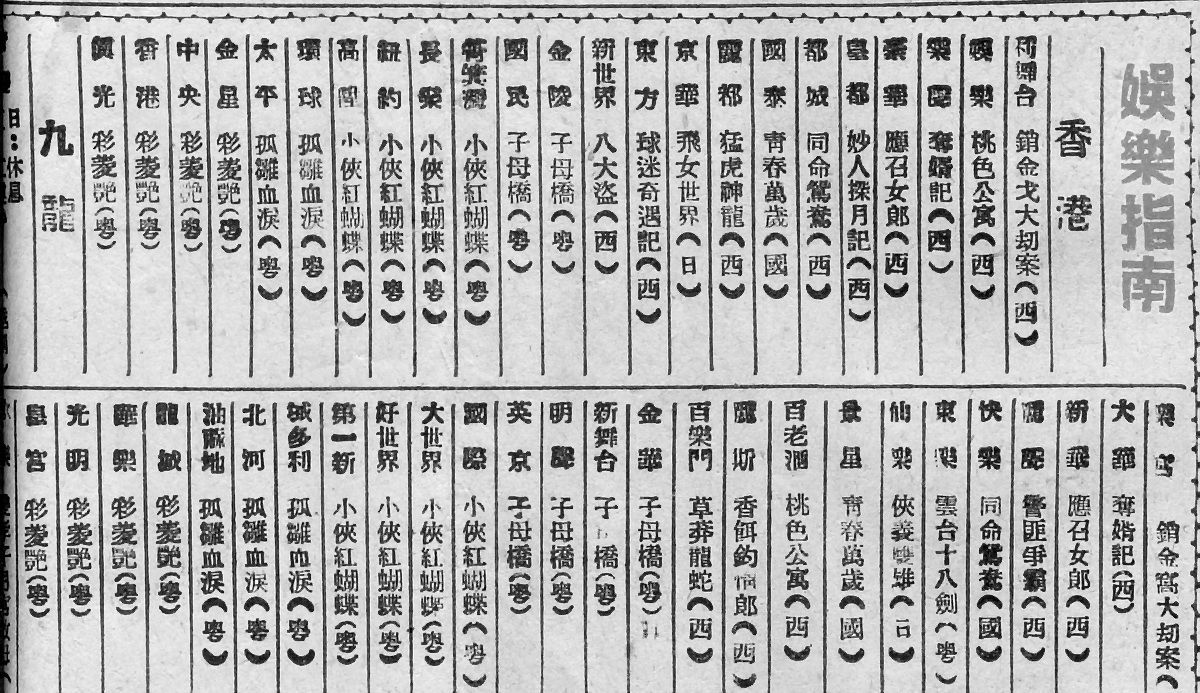 娛樂指南
香港
利舞台 銷金戈大刧案（西）
娛樂 桃色公寓（西）
樂聲 奪婿記（西）
豪華 應召女郎（西）
皇都 妙人探月記（西）
都城 同命鴛鴦（西）
國泰 靑春萬歲（國）
麗都 猛虎神龍（西）
京華 飛女世界（日）
東方 球迷奇遇記（西）
新世界 八大盜（西）
金陵 子母橋（粵）
國民 子母橋（粵）
香笑濤 小俠紅蝴蝶（粵）
長樂 小俠紅蝴蝶（粵）
紐約 小俠紅蝴蝶（粵）
高陞 小俠紅蝴蝶（粵）
環球 孤雛血淚（粵）
太平 孤雛血淚（粵）
金星 彩菱艷（粵）
中央 彩菱艷（粵）
香港 彩菱艷（粵）
眞光 彩菱艷（粵）
九龍
日：休息
樂宮 銷金窩大刧案（
大華 奪婿記（西）
新華 應召女郎（西）
麗聲 警匪爭霸（西）
快樂 同命鴛鴦（國）
東樂 雲台十八劍（粵）
仙樂 俠義雙雄（日）
景星 靑春萬歲（國）
百老滙 桃色公寓（西）
麗斯 香餌釣情郎（西）
百樂門 草莽龍蛇（西）
金華 子母橋（粵）
新舞台 子母橋（粵）
明聲 子母橋（粵）
英京 子母橋（粵）
國際 小俠紅蝴蝶（粵）
大世界 小俠紅蝴蝶（粵）
好世界 小俠紅蝴蝶（粵）
第一新 小俠紅蝴蝶（粵）
域多利 孤雛血淚（粵）
北河 孤雛血淚（粵）
油蔴地 孤雛血淚（粵）
龍城 彩菱艷（粵）
華樂 彩菱艷（粵）
光明 彩菱艷（粵）
皇宮 彩菱艷（粵）